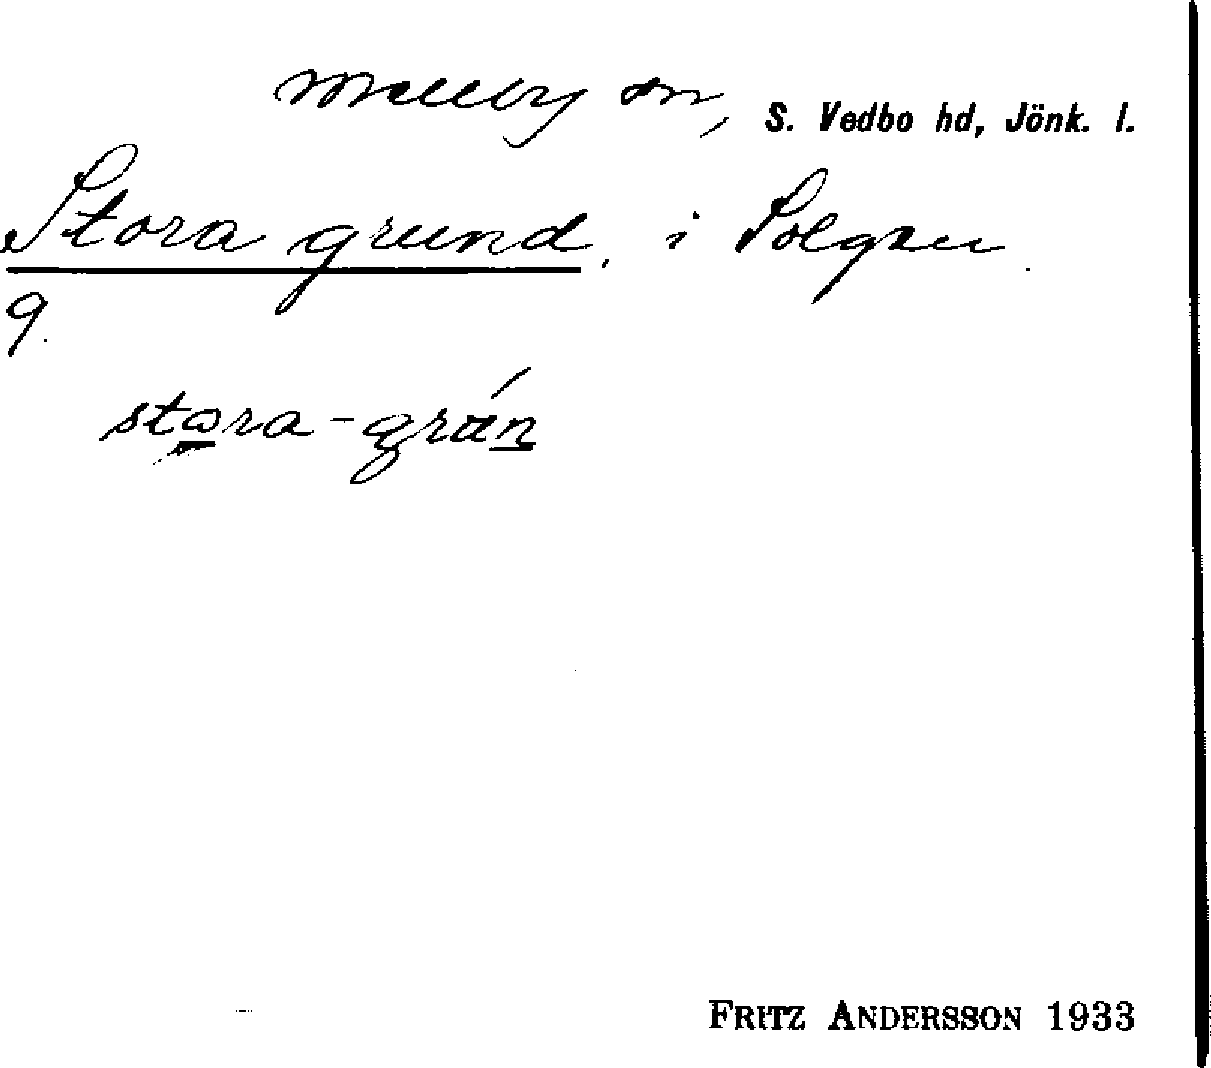 Mellby sn, S. Vedbo hd, Jönk. l.
Stora grund, i Solgen.
9.
stora-grún
FRITZ ANDERSSON 1933